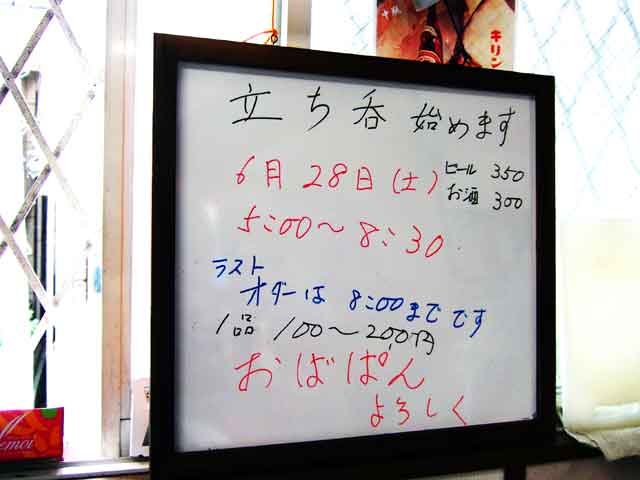 キリン
立ち呑 始めます
6月 28日(土)
ビール 350
お酒 300
5:00〜8:30
ラスト
オダーは 8:00までです
1品 100〜200円
おばぱん
よろしく
emoi